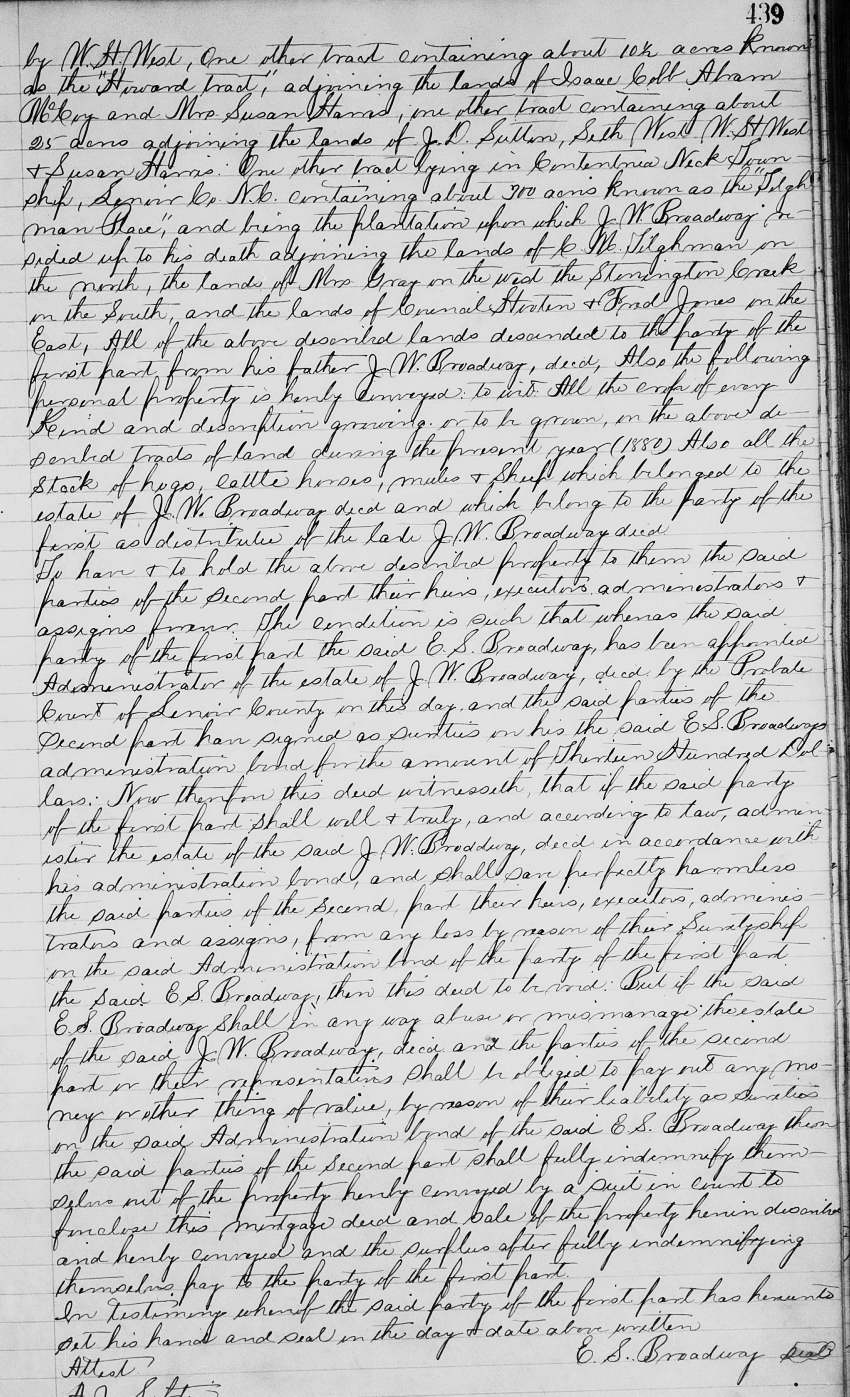 439
by W. H. West, One other tract containing about 10½ acres known
as the "Howard tract," adjoining the lands of Isaac Cobb Abram
McCoy and Mrs Susan Harris; one other tract containing about
25 acres adjoining the lands of J. D. Sutton, Seth West W. H West
& Susan Harris: One other tract lying in Contentnea Neck Town-
ship, Lenoir Co. N.C. containing about 700 acres known as the "Tilgh
man Place," and being the plantation upon which J. W. Broadway re-
sided up to his death adjoining the lands of C. M. Tilghman on
the north, the lands of Mrs Gray on the west the Stonington Creek
on the South, and the lands of Council Wooten & Fred Jones on the
East, All of the above described lands descended to the party of the
first part from his father J. W. Broadway, decd, Also the following
personal property is hereby conveyed: to wit: All the crop of every
Kind and description growing or to be grown, on the above de-
scribed tracts of land during the present year (1880) Also all the
stock of hogs, cattle horses, mules & Sheep which belonged to the
estate of J. W. Broadway decd and which belong to the party of the
first as distributee of the late J. W. Broadway decd
To have & to hold the above described property to them the said
parties of the second part their heirs, executors administrators &
assigns forever. The condition is such that whereas the said
party of the first part the said E. S. Broadway, has been appointed
Administrator of the estate of J. W. Broadway, decd. by the Probate
Court of Lenoir County on this day and the said parties of the
second part have signed as sureties on his the said E. S. Broadways
administration bond for the amount of Thirteen Hundred Dol-
lars: Now therefore this deed witnesseth, that if the said party
of the first part shall well & truly, and according to law, admin-
ister the estate of the said J. W. Broadway, decd in accordance with
his administration bond, and shall save perfectly harmless
the said parties of the second, part their heirs, executors, adminis-
trators and assigns, from any loss by reason of their Suretyship
on the said Administration bond of the party of the first part
the said E. S. Broadway, then this deed to be void: But if the said
E. S. Broadway shall in any way abuse or mismanage the estate
of the said J. W. Broadway, decd. and the parties of the second
part or their representatives shall be obliged to pay out any mo-
ney or other thing of value, by reason of their liability as sureties
on the said Administration bond of the said E. S. Broadway then
the said parties of the second part shall fully indemnify them-
selves out of the property hereby conveyed by a suit in court to
foreclose this mortgage deed and sale of the property herein described
and hereby conveyed and the surplus after fully indemnifying
themselves pay to the party of the first part.
In testimony whereof the said party of the first part has hereunto
set his hand and seal on the day & date above written
E. S. Broadway seal
Attest